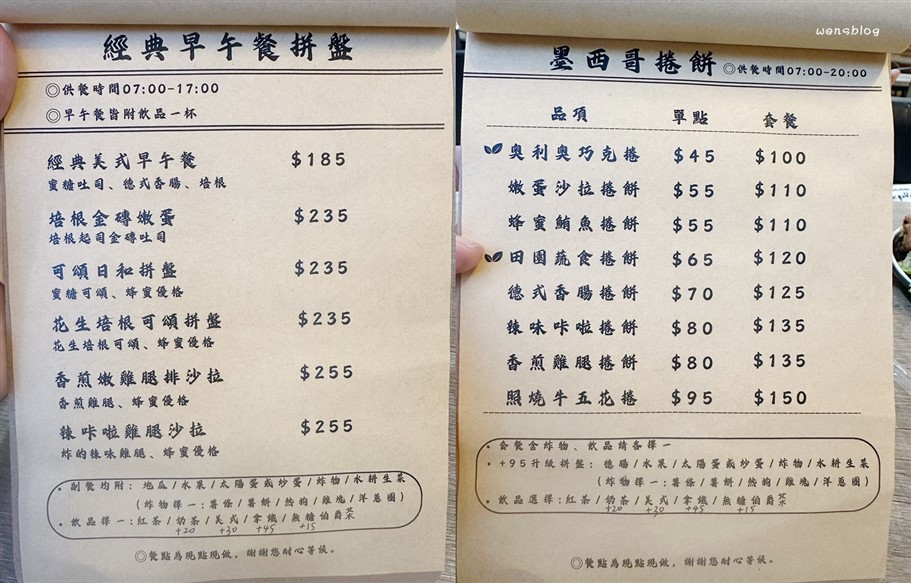 經典早午餐拼盤
◎供餐時間07:00-17:00
◎早午餐皆附飲品一杯
經典美式早午餐 $185
蜜糖吐司、德式香腸、培根
培根金磚嫩蛋 $235
培根起司金磚吐司
可頌日和拼盤 $235
蜜糖可頌、蜂蜜優格
花生培根可頌拼盤 $235
花生培根可頌、蜂蜜優格
香煎嫩雞腿排沙拉 $255
香煎雞腿、蜂蜜優格
辣咔啦雞腿沙拉 $255
炸的辣味雞腿、蜂蜜優格
• 副餐均附: 地瓜/水果/太陽蛋或炒蛋/炸物/水耕生菜
(炸物擇一:薯條/薯餅/熱狗/雞塊/洋蔥圈)
• 飲品擇一:紅茶/奶茶/美式/拿鐵/無糖伯爵茶
+20 +30 +45 +15
◎餐點為現點現做,謝謝您耐心等候。
wensblog
墨西哥捲餅 ◎供餐時間07:00-20:00
品項 單點 套餐
奧利奧巧克捲 $45 $100
嫩蛋沙拉捲餅 $55 $110
蜂蜜鮪魚捲餅 $55 $110
田園蔬食捲餅 $65 $120
德式香腸捲餅 $70 $125
辣味咔啦捲餅 $80 $135
香煎雞腿捲餅 $80 $135
照燒牛五花捲 $95 $150
• 套餐含炸物、飲品請各擇一
• +95升級拼盤: 德腸/水果/太陽蛋或炒蛋/炸物/水耕生菜
(炸物擇一:薯條/薯餅/熱狗/雞塊/洋蔥圈)
• 飲品選擇:紅茶/奶茶/美式/拿鐵/無糖伯爵茶
+20 +30 +45 +15
◎餐點為現點現做,謝謝您耐心等候。